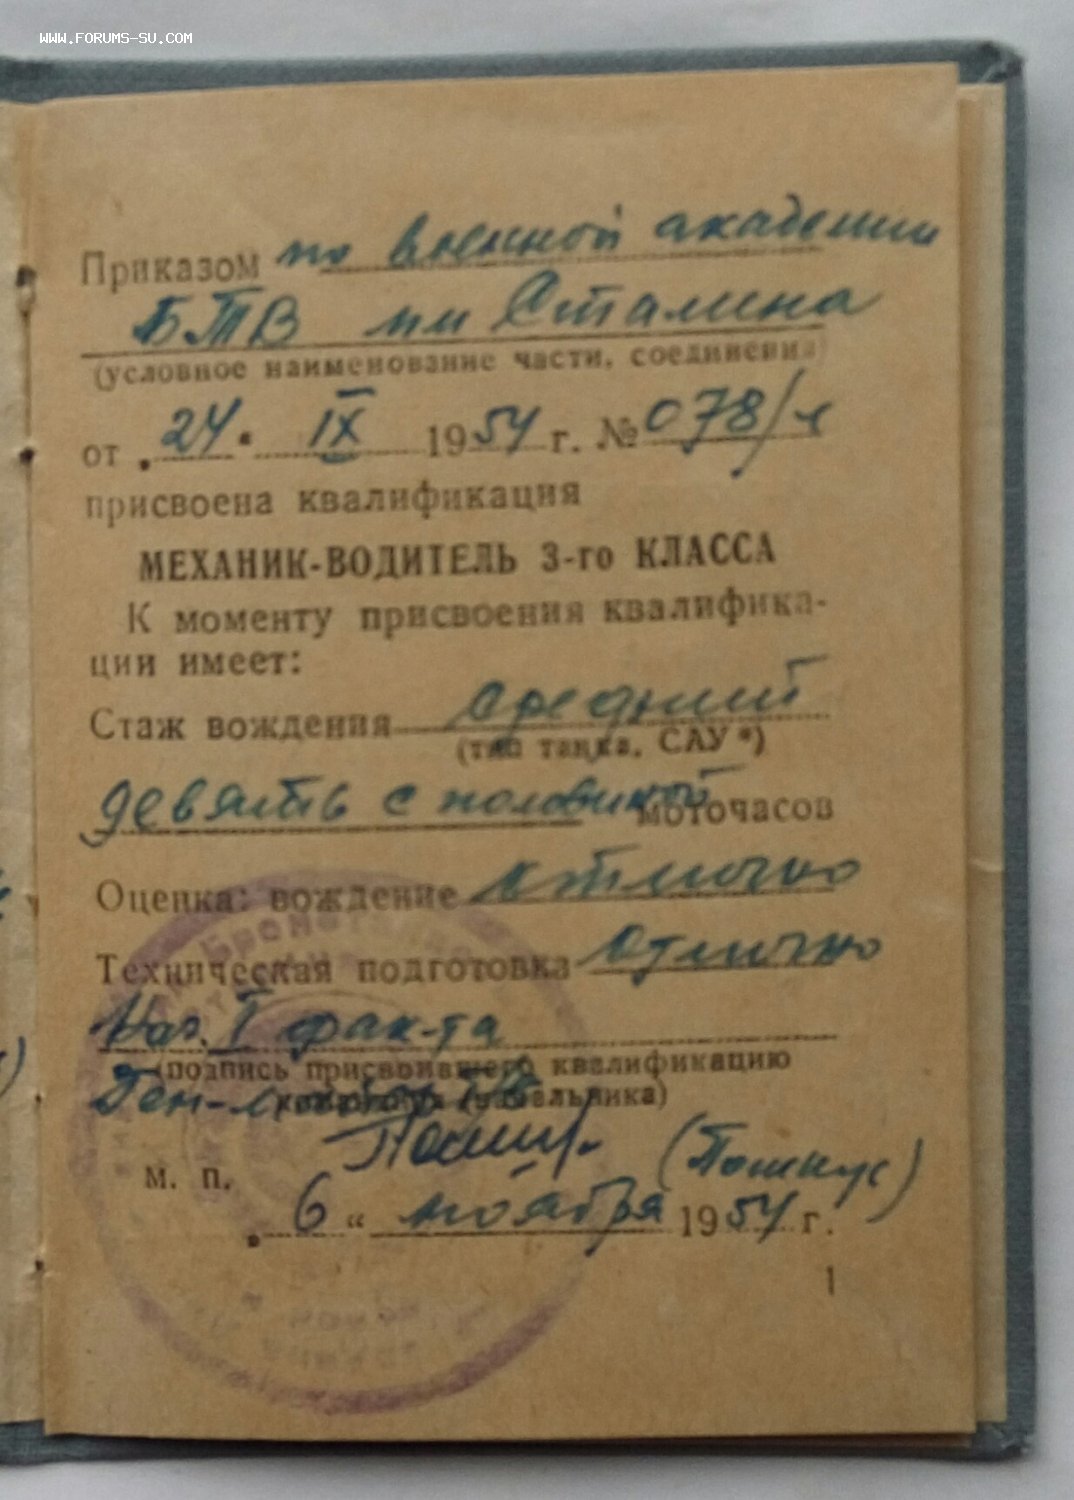 WWW.FORUMS-SU.COM
Приказом по военной академии
БТВ им Сталина
(условное наименование части, соединения)
от „24“ IX 1954 г. № 078/л
присвоена квалификация
МЕХАНИК-ВОДИТЕЛЬ 3-го КЛАССА
К моменту присвоения квалифика-
ции имеет:
Стаж вождения средний
(тип танка, САУ*)
девять с половиной моточасов
Оценка: вождение отлично
Техническая подготовка отлично
Нач. I фак-та
(подпись присвоившего квалификацию
Ген-
(Пошкус)
М. П.
„6“ ноября 1954 г.
1